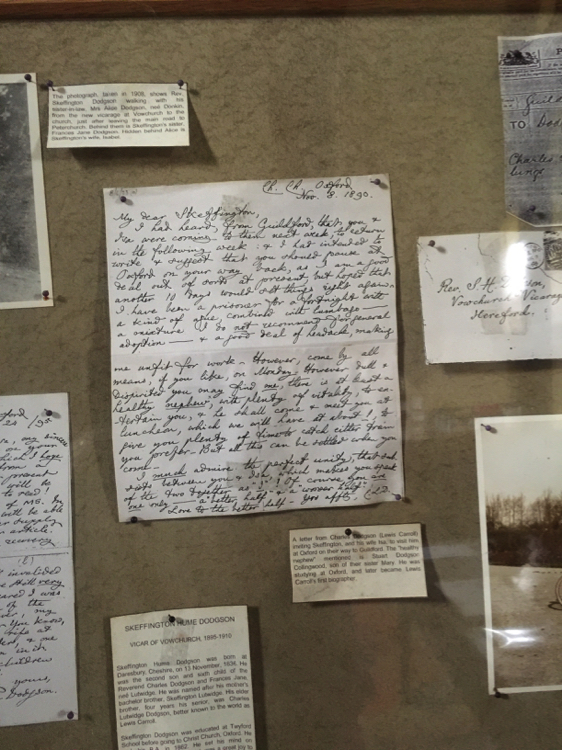 The photograph, taken in 1909, shows Rev.
Skeffington Dodgson walking with his
sister-in-law, Mrs Alice Dodgson, née Donkin,
from the new vicarage at Vowchurch to the
church, just after leaving the main road to
Peterchurch. Behind them is Skeffington's sister
Frances Jane Dodgson. Hidden behind Alice is
Skeffington's wife, Isabel.
Ch. Ch. Oxford,
Nov. 8. 1890.
My dear Skeffington,
I had heard, from Guildford, that you &
Isa were coming to them next week, to return
in the following week: & I had intended to
write & suggest that you should pause at
Oxford on your way back, as I am a good
deal out of sorts at present, but hoped that
another 10 days would set things right again.
I have been a prisoner for a fortnight with
a kind of ague, combined with lumbago —
a mixture I do not recommend for general
adoption — & a good deal of headache, making
me unfit for work. However, come by all
means, if you like, on Monday. However dull &
dispirited you may find me, there is at least a
healthy nephew, with plenty of vitality, to en-
tertain you, & he shall come & meet you at
luncheon, which we will have at about 1, to
give you plenty of time to catch either train
you prefer. But all this can be settled when you
come.
I much admire the perfect unity, that
exists between you & Isa, which makes you speak
of the two together as "I"! Of course you are
one only — a better half & a worse half!
Love to the better half. Yrs affte, C.L.D.
A letter from Charles Dodgson (Lewis Carroll)
inviting Skeffington, and his wife Isa, to visit him
at Oxford on their way to Guildford. The "healthy
nephew" mentioned is Stuart Dodgson
Collingwood, son of their sister Mary. He was
studying at Oxford, and later became Lewis
Carroll's first biographer.
Guild
TO
Charles
lungs
Rev. S. H. Dodgson,
Vowchurch Vicarage
Hereford.
SKEFFINGTON HUME DODGSON
VICAR OF VOWCHURCH, 1895-1910
Skeffington Hume Dodgson was born at
Daresbury, Cheshire, on 13 November, 1836. He
was the second son and sixth child of the
Reverend Charles Dodgson and Frances Jane,
née Lutwidge. He was named after his mother's
bachelor brother, Skeffington Lutwidge. His elder
brother, four years his senior, was Charles
Lutwidge Dodgson, better known to the world as
Lewis Carroll.
Skeffington was educated at Twyford
School before going to Christ Church, Oxford. He
present
will do
to read
of MS. My
will be able
supply
article.
invalided
still very
I was
of the
my
you know,
&
in
children
yours,
Dodgson.